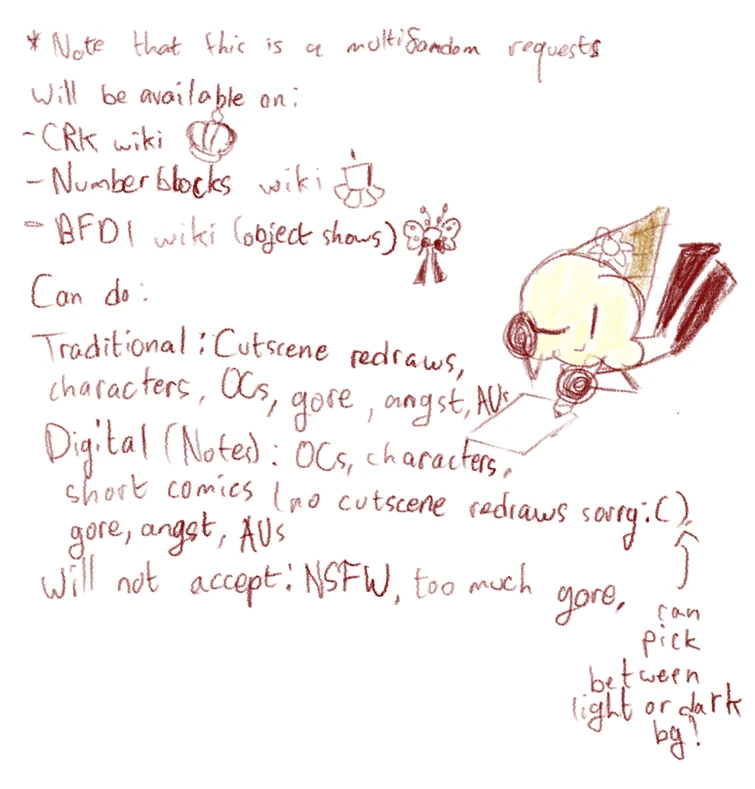 * Note that this is a multifandom requests
will be available on:
- CRK wiki
- Numberblocks wiki
- BFDI wiki (object shows)
Can do:
Traditional: Cutscene redraws,
characters, OCs, gore, angst, AUs
Digital (Notes): OCs, characters,
short comics (no cutscene redraws sorry:()
gore, angst, AUs
Will not accept: NSFW, too much gore,
can
pick
between
light or dark
bg!